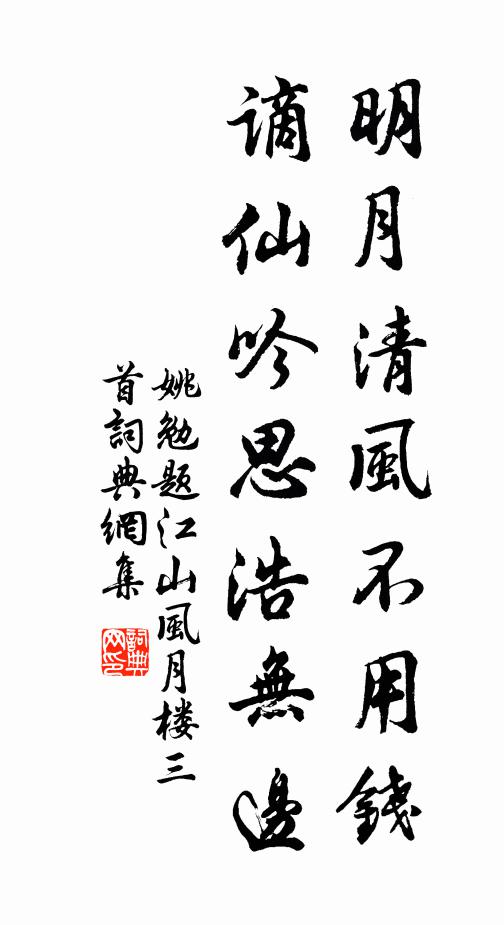 明月清風不用錢
謫仙吟思浩無邊
姚勉題江山風月楼三
首詞典網集
詞典
网印